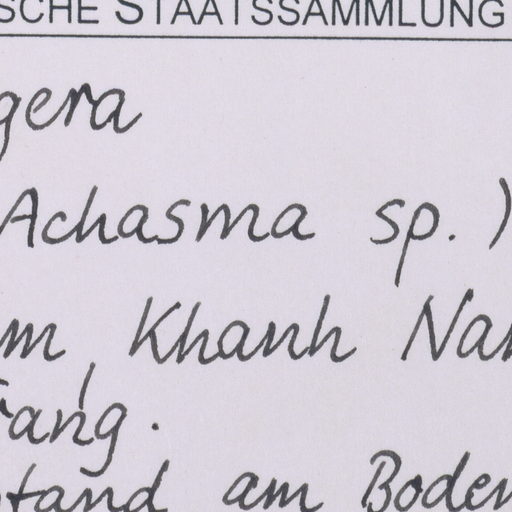 SCHE STAATSSAMMLUNG
gera
Achasma sp.)
m, Khanh Nan
rang.
stand am Boden